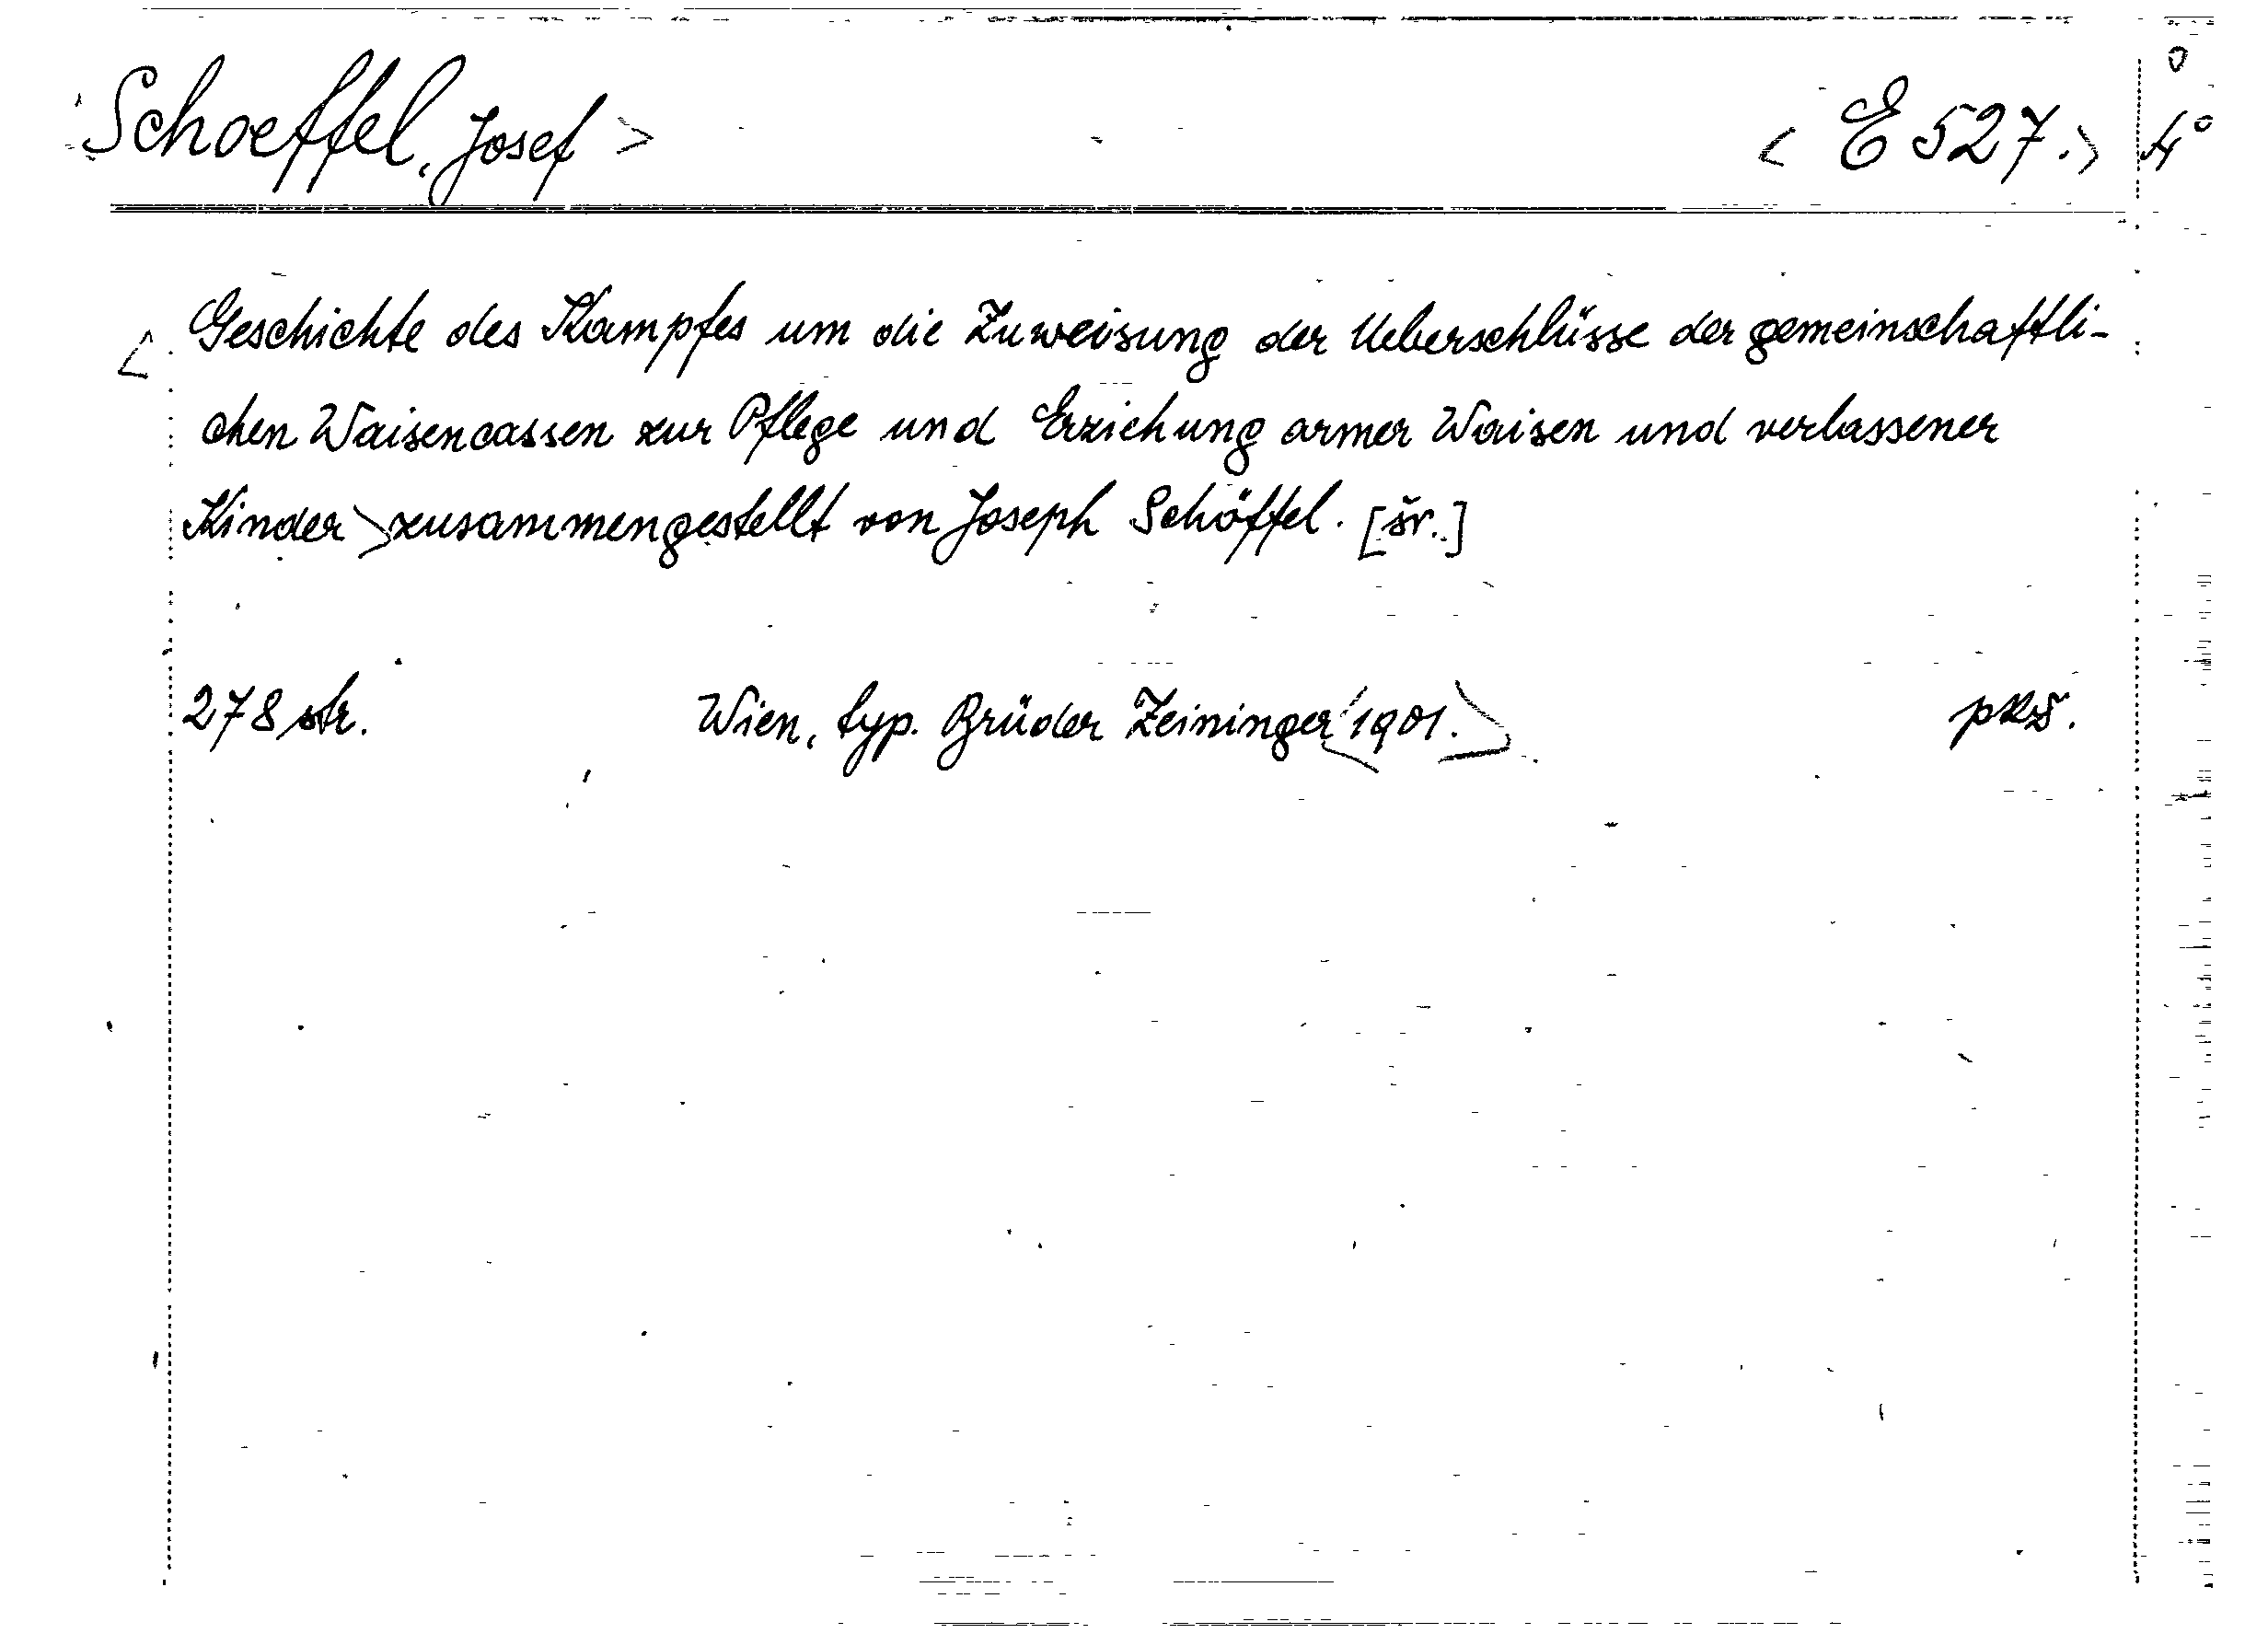 Schoeffel, Josef > < E 527. > 4°
< Geschichte des Kampfes um die Zuweisung der Ueberschlüsse der gemeinschaftli-
chen Waisencassen zur Pflege und Erziehung armer Waisen und verlassener
Kinder > zusammengestellt von Joseph Schöffel. [šr.]
278 str. Wien, typ. Brüder Zeininger < 1901. > pkš.